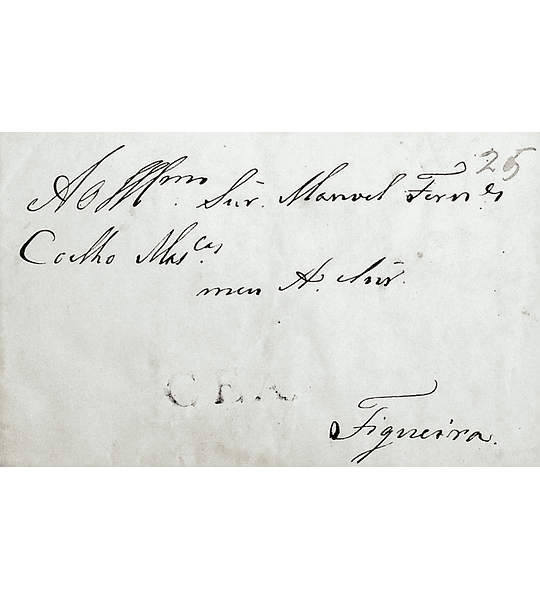 25
Ao Illmo. Snr. Manoel Fernes
Coelho Mascas.
meu A. Snr.
CEA
Figueira.